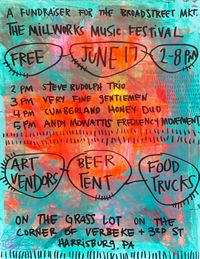 A FUNDRAISER FOR THE BROADSTREET MKT.
THE MILLWORKS MUSIC FESTIVAL
FREE JUNE 17 2-8 PM
2 PM STEVE RUDOLPH TRIO
3 PM VERY FINE GENTLEMEN
4 PM CUMBERLAND HONEY DUO
5 PM ANDY MOWATTS FREQUENCY MOVEMENT
ART VENDORS
BEER TENT
FOOD TRUCKS
ON THE GRASS LOT ON THE
CORNER OF VERBEKE + 3RD ST
HARRISBURG, PA